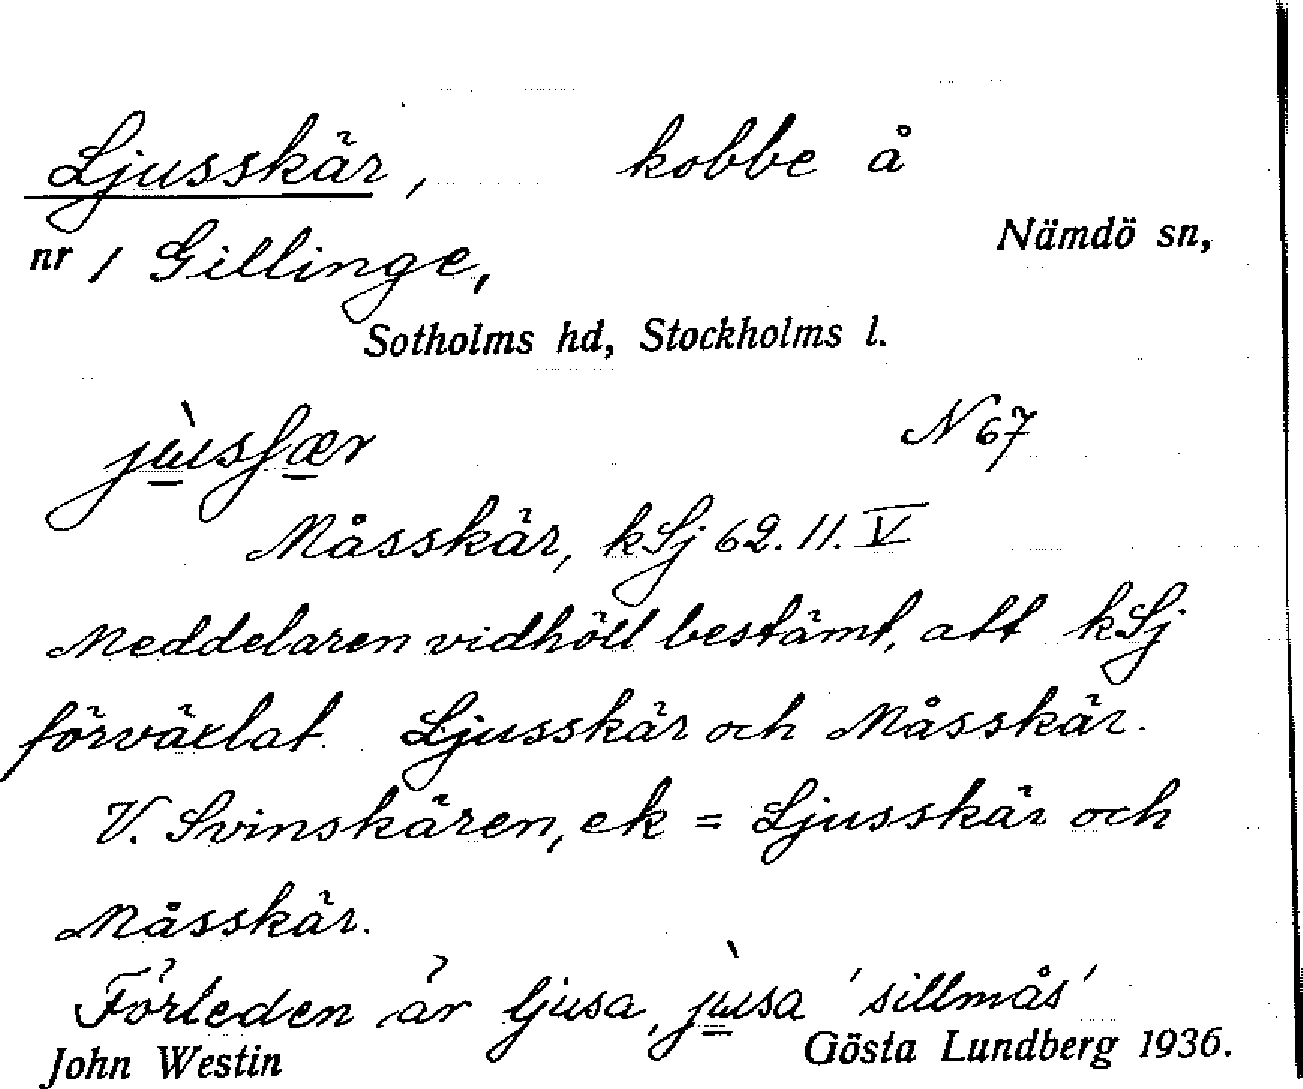 Ljusskär, kobbe å
nr 1 Gillinge, Nämdö sn,
Sotholms hd, Stockholms l.
N 67
Måsskär, kSj 62.11.V
Meddelaren vidhöll bestämt, att kSj
förväxlat Ljusskär och Måsskär.
V. Svinskären, ek = Ljusskär och
Måsskär.
Förleden är ljusa, 'sillmås'
John Westin Gösta Lundberg 1936.